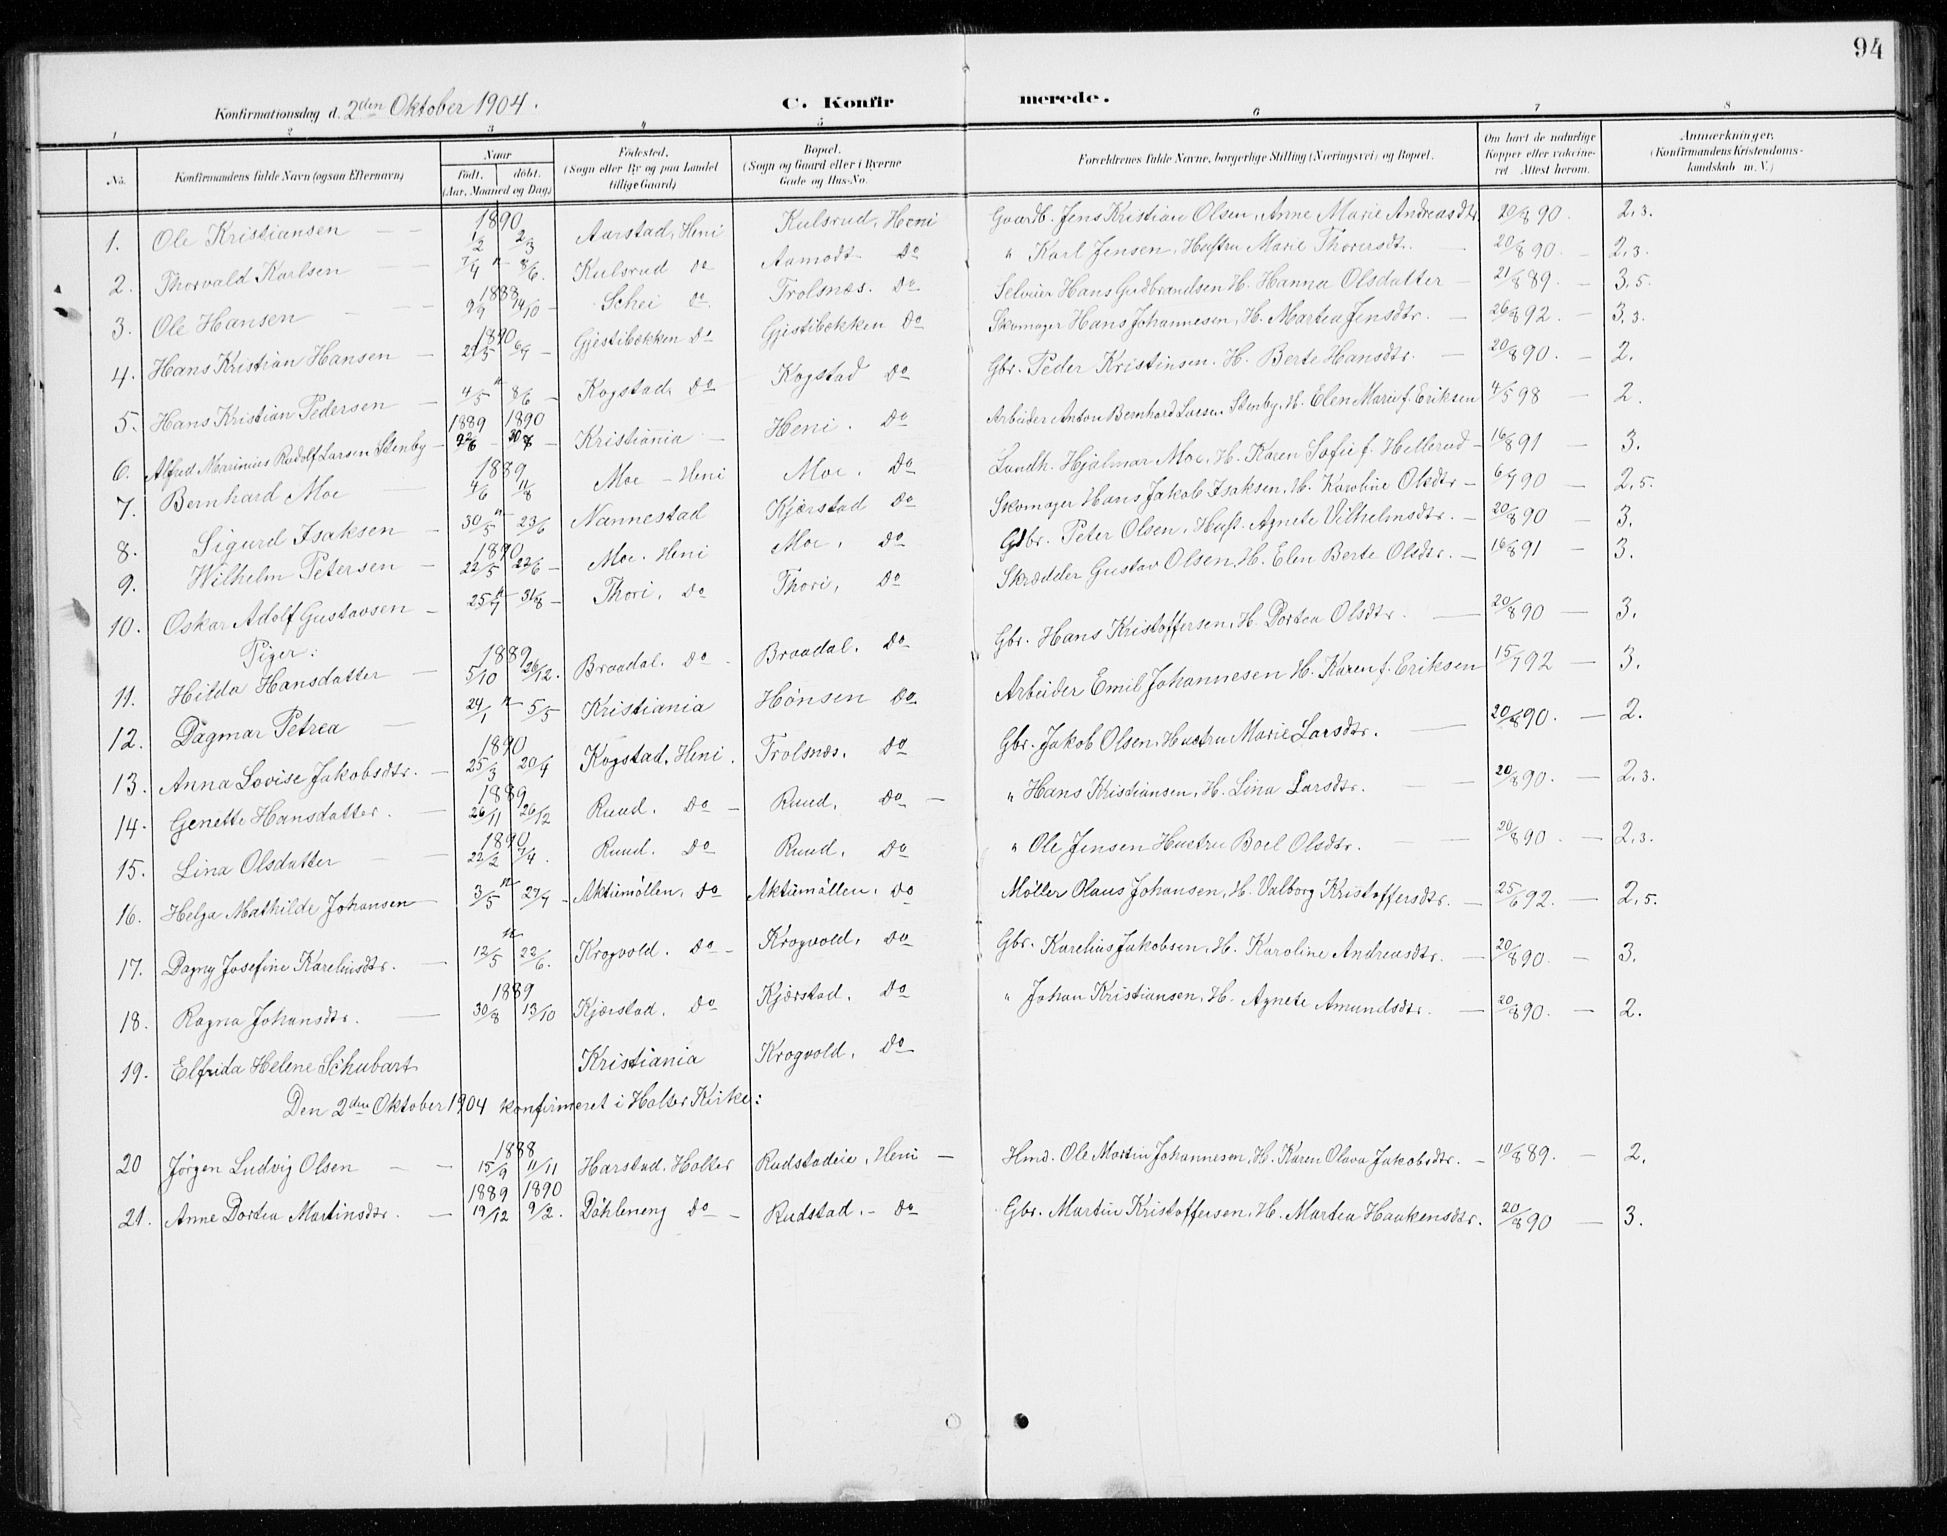 94
Konfirmationsdag d. 2den Oktober 1904. C. Konfirmerede.
1 2 3 4 5 6 7 8
No. Konfirmandens fulde Navn (ogsaa Efternavn) Naar født. døbt. (Aar, Maaned og Dag) Fødested. (Sogn eller By og paa Landet tillige Gaard) Bopæl. (Sogn og Gaard eller i Byerne Gade og Hus-No. Forældrenes fulde Navne, borgerlige Stilling (Næringsvei) og Bopæl. Om havt de naturlige Kopper eller vakcineret Attest herom. Anmærkninger. (Konfirmandens Kristendomskundskab m. V.)
1. Ole Kristiansen 1890 1/2 2/3 Aarstad, Heni Kulsrud, Heni Gaardb. Jens Kristian Olsen, Anne Marie Andreasdtr 20/8 90. 2,3.
2. Thorvald Karlsen 7/4 " 8/6. Kulsrud do Aamodt do " Karl Jensen, Hustru Marie Thorersdt. 20/8 90. 2,3.
3. Ole Hansen 1888 9/9 14/10 Schei do Trolsnæs. do Selveier Hans Gudbrandsen H. Hanna Olsdatter 21/8 89. 3,5.
4. Hans Kristian Hansen 1890 29/3 6/7 Gjestibækken do Gjestibækken do Skomager Hans Johannesen, H. Martea Jensdtr. 26/8 92. 3,3.
5. Hans Kristian Pedersen 4/5 " 8/6 Kogstad, do Kogstad do Gbr. Peder Kristinsen. H. Berte Hansdtr. 20/8 90. 2.
6. Alfred Marinius Rudolf Larsen Stenby 1889 1890 22/6 30/8 Kristiania Heni. do Arbeider Anton Bernhard Larsen Stenby, H. Elen Marie f. Eriksen 4/5 98 2.
7. Bernhard Moe 1889 4/6 11/8 Moe - Heni Moe. do Landh. Hjalmar Moe, H. Karen Sofie f. Hellerud 16/8 91 3.
8. Sigurd Isaksen 30/5 " 23/6 Nannestad Kjærstad do Skomager Hans Jakob Isaksen, H. Karoline Olsdtr 6/7 90 2,5.
9. Wilhelm Petersen 1890 22/5 22/6 Moe. Heni Moe, do Gbr. Peter Olsen, Hust. Agnete Vilhelmsdtr. 20/8 90 3.
10. Oskar Adolf Gustavsen 25/7 " 31/8 Thori, do Thori, do Skrædder Gustav Olsen, H. Elen Berte Olsdtr. 16/8 91 3.
Piger:
11. Hilda Hansdatter 1889 5/10 26/12. Braadal. do Braadal. do Gbr. Hans Kristoffersen, H. Dortea Olsdtr. 20/8 90 3.
12. Dagmar Petrea 24/1 " 5/5 Kristiania Hønsen do Arbeider Emil Johannesen H. Karen f. Eriksen 15/7 92 3.
13. Anna Lovise Jakobsdtr. 1890 25/3 20/4 Kogstad, Heni. Trolsnæs. do Gbr. Jakob Olsen, Hustru Marie Larsdtr. 20/8 90. 2.
14. Genette Hansdatter. 1889 26/11 26/12 Ruud. do Ruud. do " Hans Kristiansen, H. Lina Larsdtr. 20/8 90. 2,3.
15. Lina Olsdatter 1890 22/2 7/4. Ruud. do Ruud. do " Ole Jensen Hustru Boel Olsdtr. 20/8 90. 2,3.
16. Helga Mathilde Johansen 3/5 " 27/7 Aktiemøllen, do Aktiemøllen. do Møller Olaus Johansen, H. Valborg Kristoffersdtr. 25/6 92. 2,5.
17. Dagny Josefine Kareliusdtr. 12/5 " 22/6. Krogvold. do Krogvold. do Gbr. Karelius Jakobsen, H. Karoline Andreasdtr. 20/8 90. 3.
18. Ragna Johansdtr. 1889 30/8 13/10 Kjærstad. do Kjærstad. do " Johan Kristiansen, H. Agnete Amundsdtr. 20/8 90. 2.
19. Elfrida Helene Schubart Kristiania Krogvold. do
Den 2den Oktober 1904 konfirmeret i Holter Kirke:
20 Jørgen Ludvig Olsen 1888 15/9 11/11 Harstad. Holter Rudstadeie, Heni Hmd. Ole Martin Johannesen, H. Karen Olava Jakobsdtr. 10/8 89. 2.
21. Anne Dortea Martinsdtr. 1889 1890 19/12 9/2. Døhleneng do Rudstad. do Gbr. Martin Kristoffersen, H. Martea Haakensdtr. 20/8 90 3.